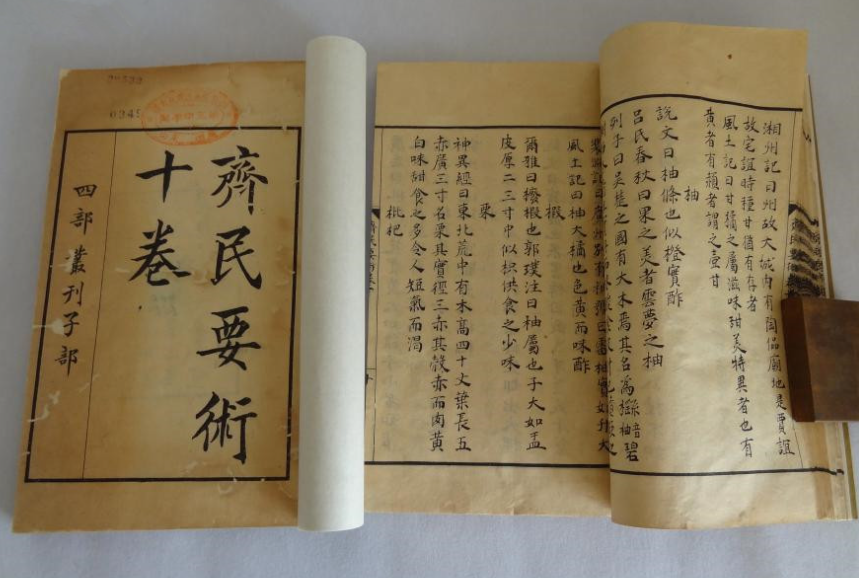 齊民要術
十卷
四部叢刊子部
湘州記曰州故大城內有陶侃廟地是賈誼
故宅誼時種甘猶有存者
風土記曰甘橘之屬滋味甜美特異者也有
黃者有赬者謂之壺甘
柚
說文曰柚條也似橙實酢
呂氏春秋曰果之美者雲夢之柚
列子曰吳楚之國有大木焉其名為櫾音碧
風土記曰柚大橘也色黃而味酢
椵
爾雅曰櫠椵也郭璞注曰柚屬也子大如盂
皮厚二三寸中似枳供食之少味
栗
神異經曰東北荒中有木高四十丈葉長五
赤廣三寸名栗其實徑三赤其殼赤而肉黃
白味甜食之多令人短氣而渴
枇杷